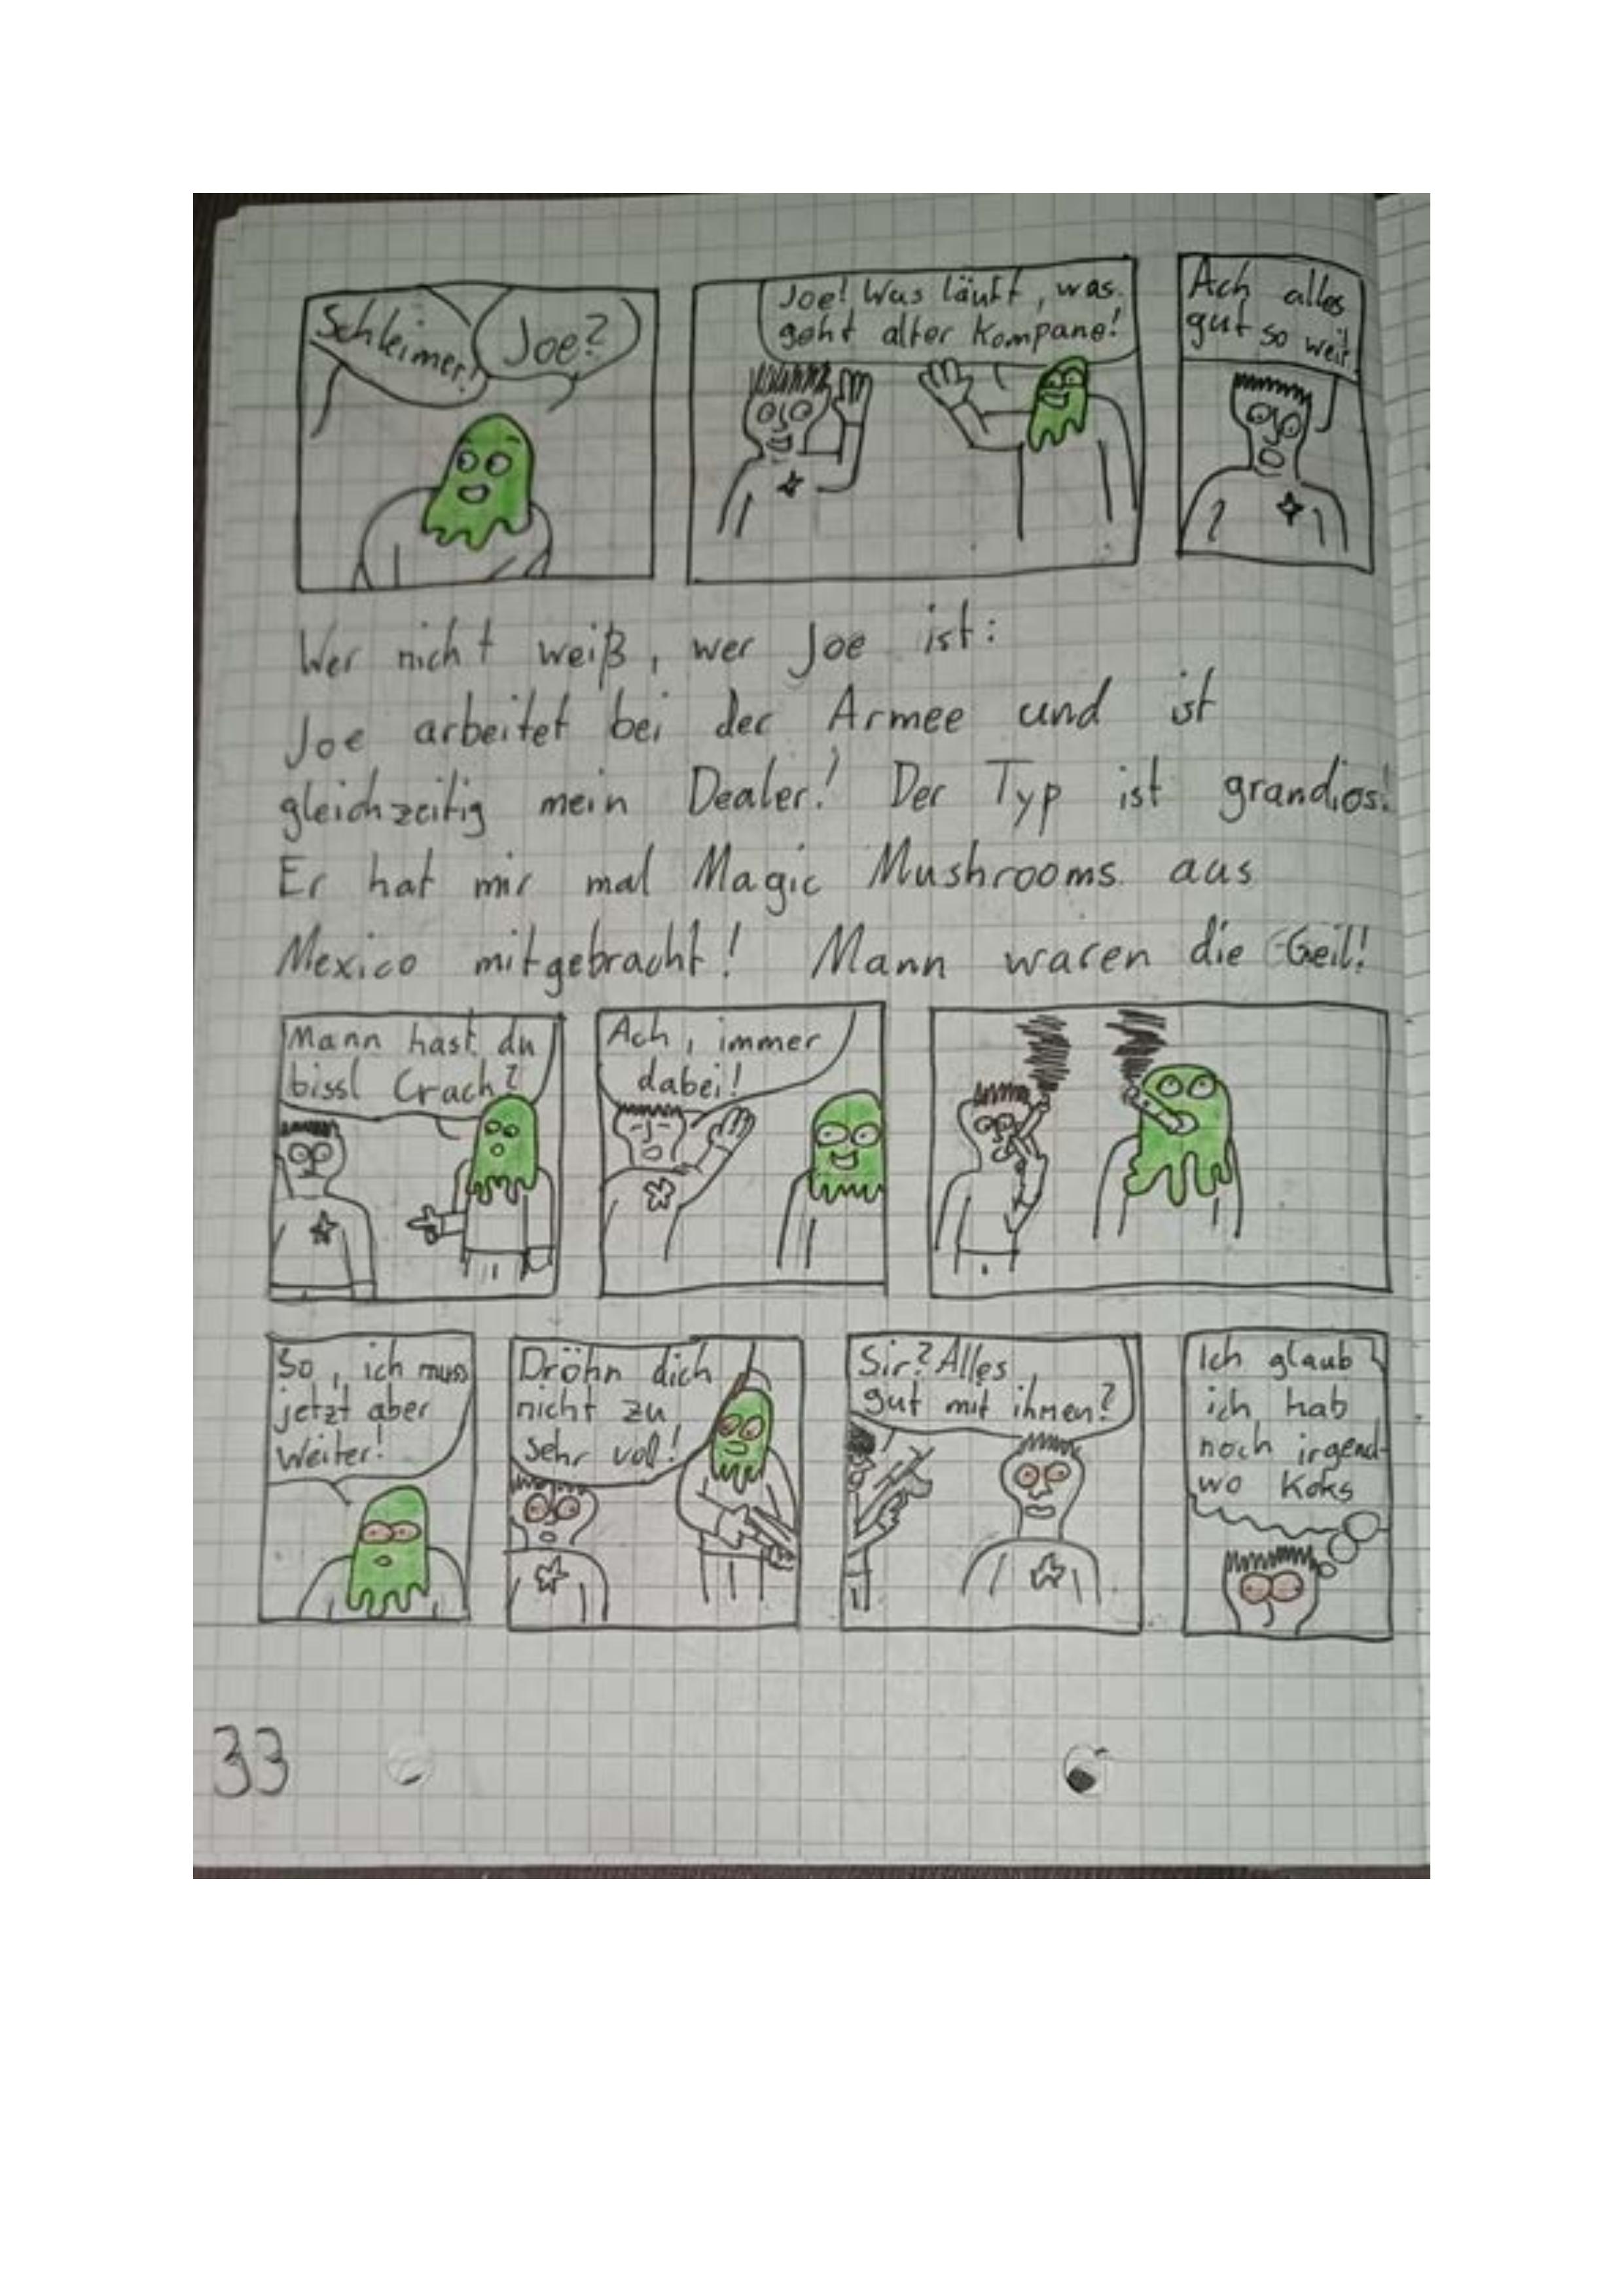 Schleimer!
Joe?
Joe! Was läuft, was
geht alter Kompane!
Ach alles
gut so weit
Wer nicht weiß, wer Joe ist:
Joe arbeitet bei der Armee und ist
gleichzeitig mein Dealer! Der Typ ist grandios!
Er hat mir mal Magic Mushrooms aus
Mexico mitgebracht! Mann waren die Geil!
Mann hast du
bissl Crach?
Ach, immer
dabei!
So, ich muss
jetzt aber
weiter!
Dröhn dich
nicht zu
sehr voll!
Sir? Alles
gut mit ihnen?
Ich glaub
ich hab
noch irgend-
wo Koks
33